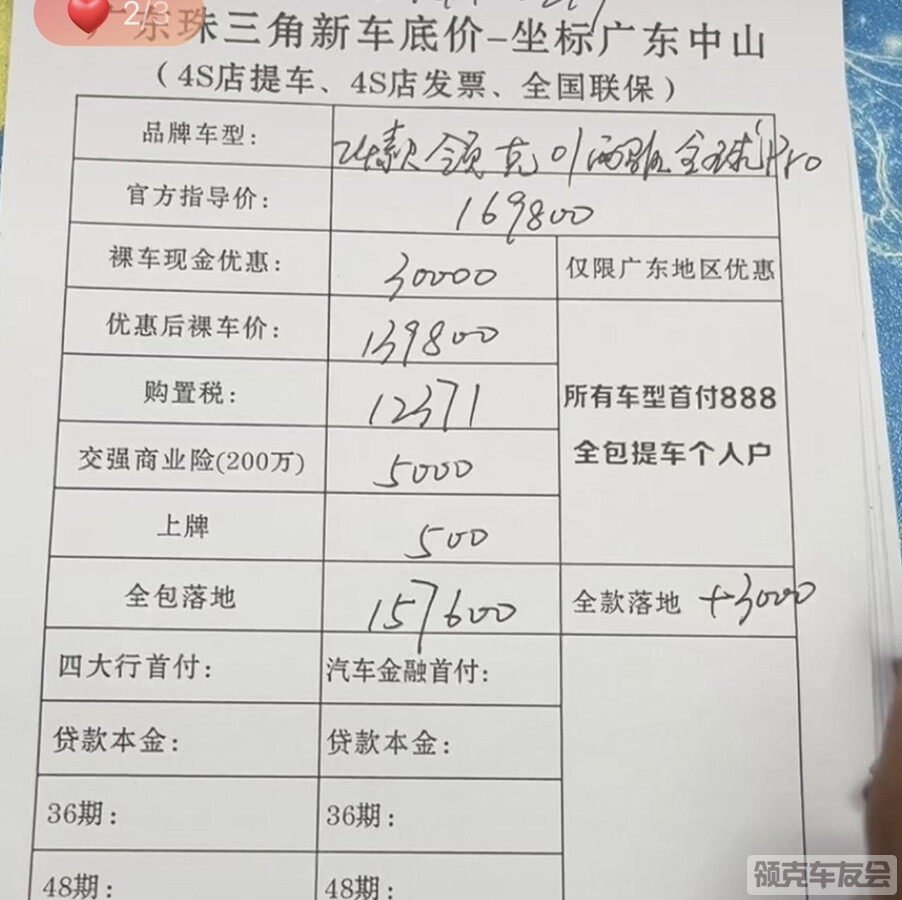 2/3
广东珠三角新车底价-坐标广东中山
(4S店提车、4S店发票、全国联保)
品牌车型: 24款领克01两驱全球Pro
官方指导价: 169800
裸车现金优惠: 30000 仅限广东地区优惠
优惠后裸车价: 139800
购置税: 12371
所有车型首付888
交强商业险(200万) 5000
全包提车个人户
上牌 500
全包落地 157600 全款落地 +3000
四大行首付: 汽车金融首付:
贷款本金: 贷款本金:
36期: 36期:
48期: 48期:
领克车友会